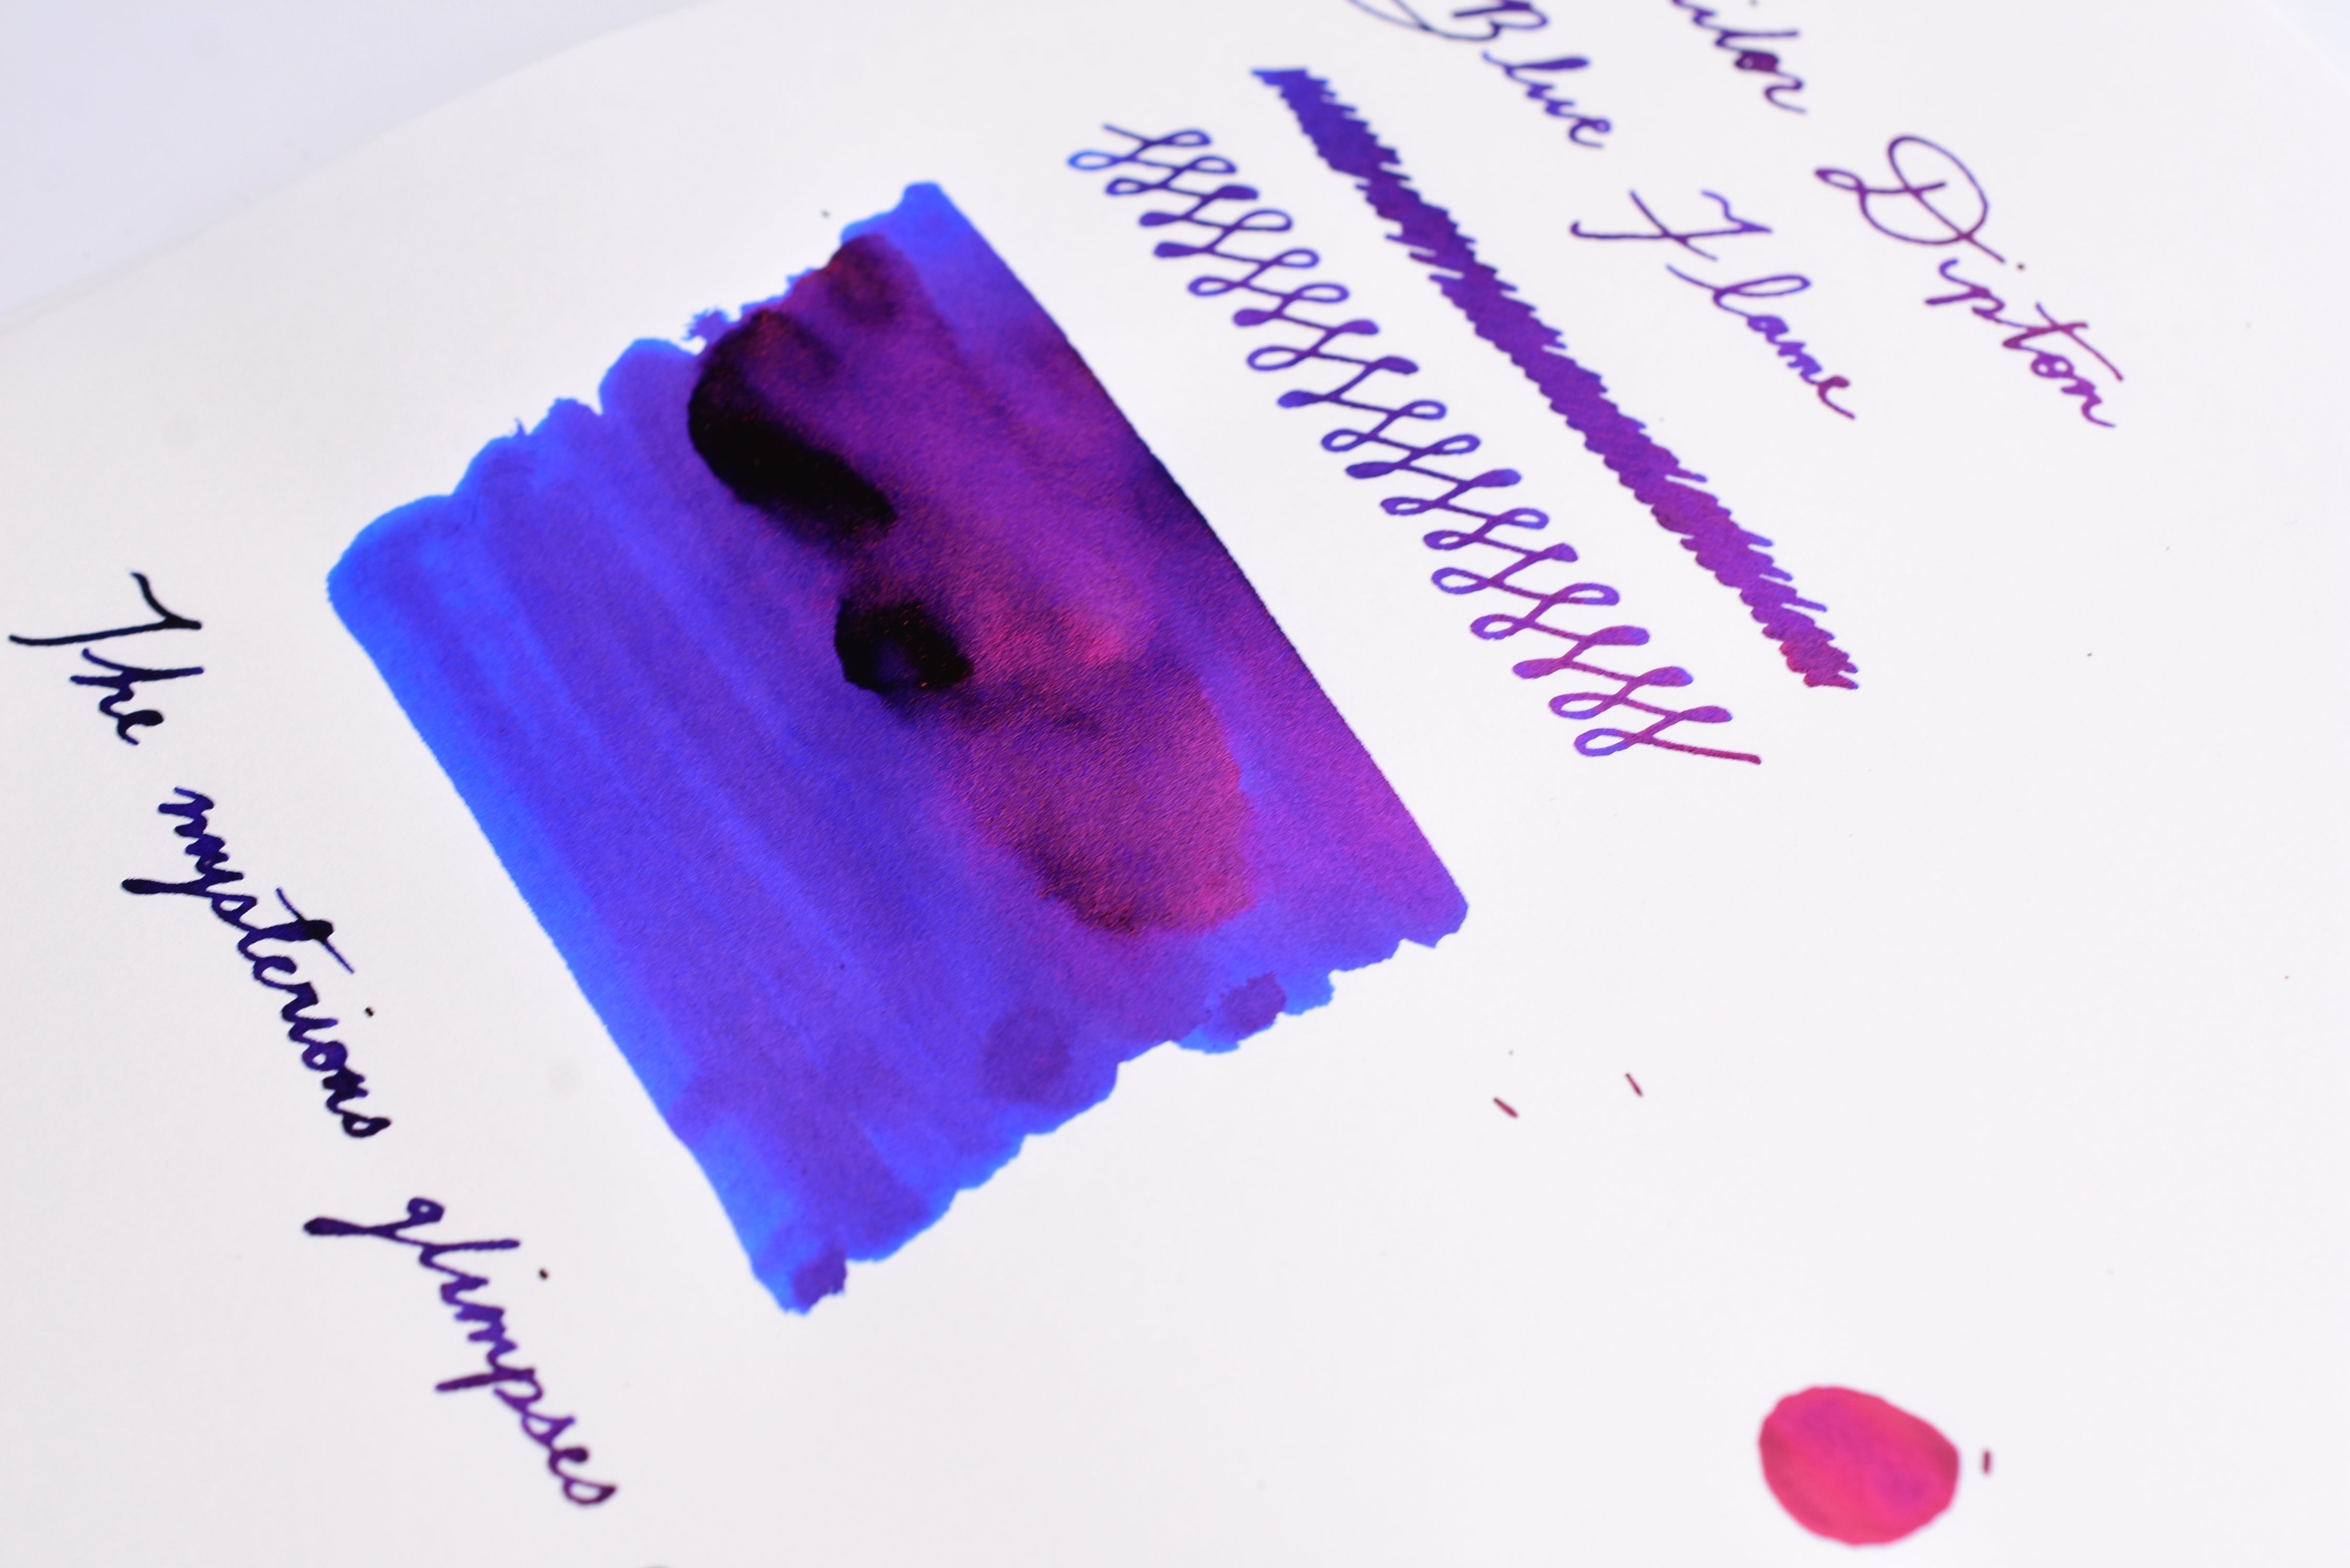 Dipton
Blue Flame
The mysterious glimpses